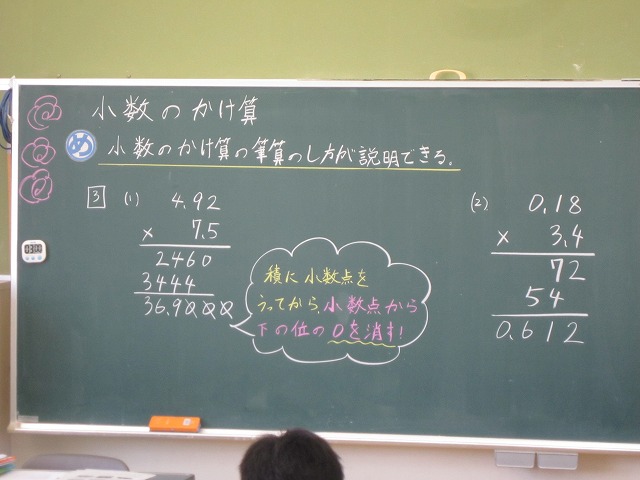 小数のかけ算
め 小数のかけ算の筆算のし方が説明できる。
3 (1) 4.92
× 7.5
2460
3444
36.9000
積に小数点を
うってから、小数点から
下の位の0を消す!
(2) 0.18
× 3.4
72
54
0.612